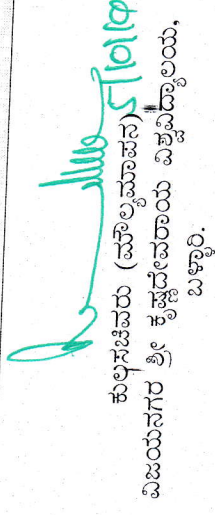 ಕುಲಸಚಿವರು (ಮೌಲ್ಯಮಾಪನ)
ವಿಜಯನಗರ ಶ್ರೀ ಕೃಷ್ಣದೇವರಾಯ ವಿಶ್ವವಿದ್ಯಾಲಯ,
ಬಳ್ಳಾರಿ.